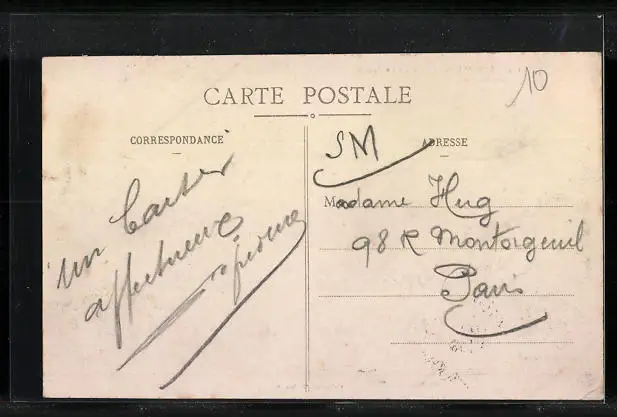 CARTE POSTALE
10
CORRESPONDANCE
ADRESSE
SM
Madame Hug
98 R Montorgeuil
Paris
un baiser
affectueux